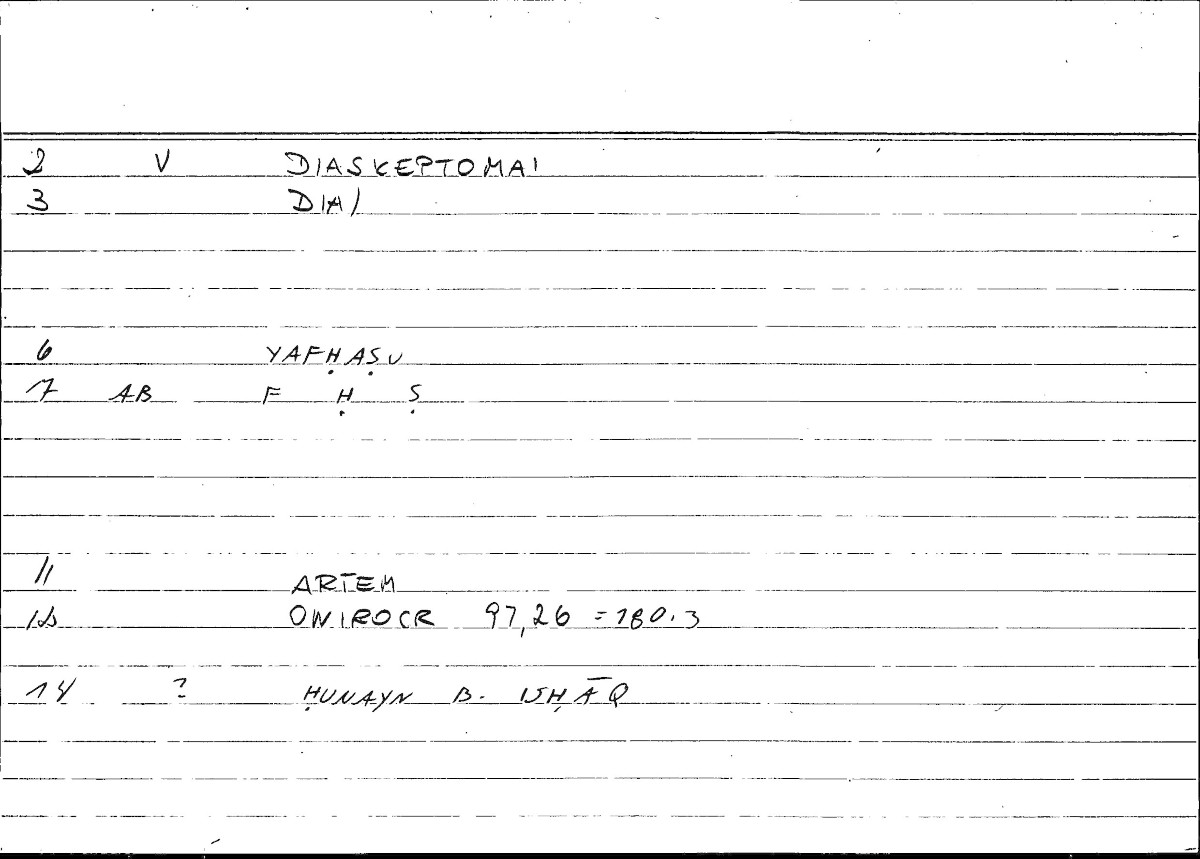 2 V DIASKEPTOMAI
3 DIA/
6 YAFḤAṢU
7 AB F Ḥ Ṣ
11 ARTEM
12 ONIROCR 97,26 = 180.3
14 ? ḤUNAYN B. ISḤĀQ